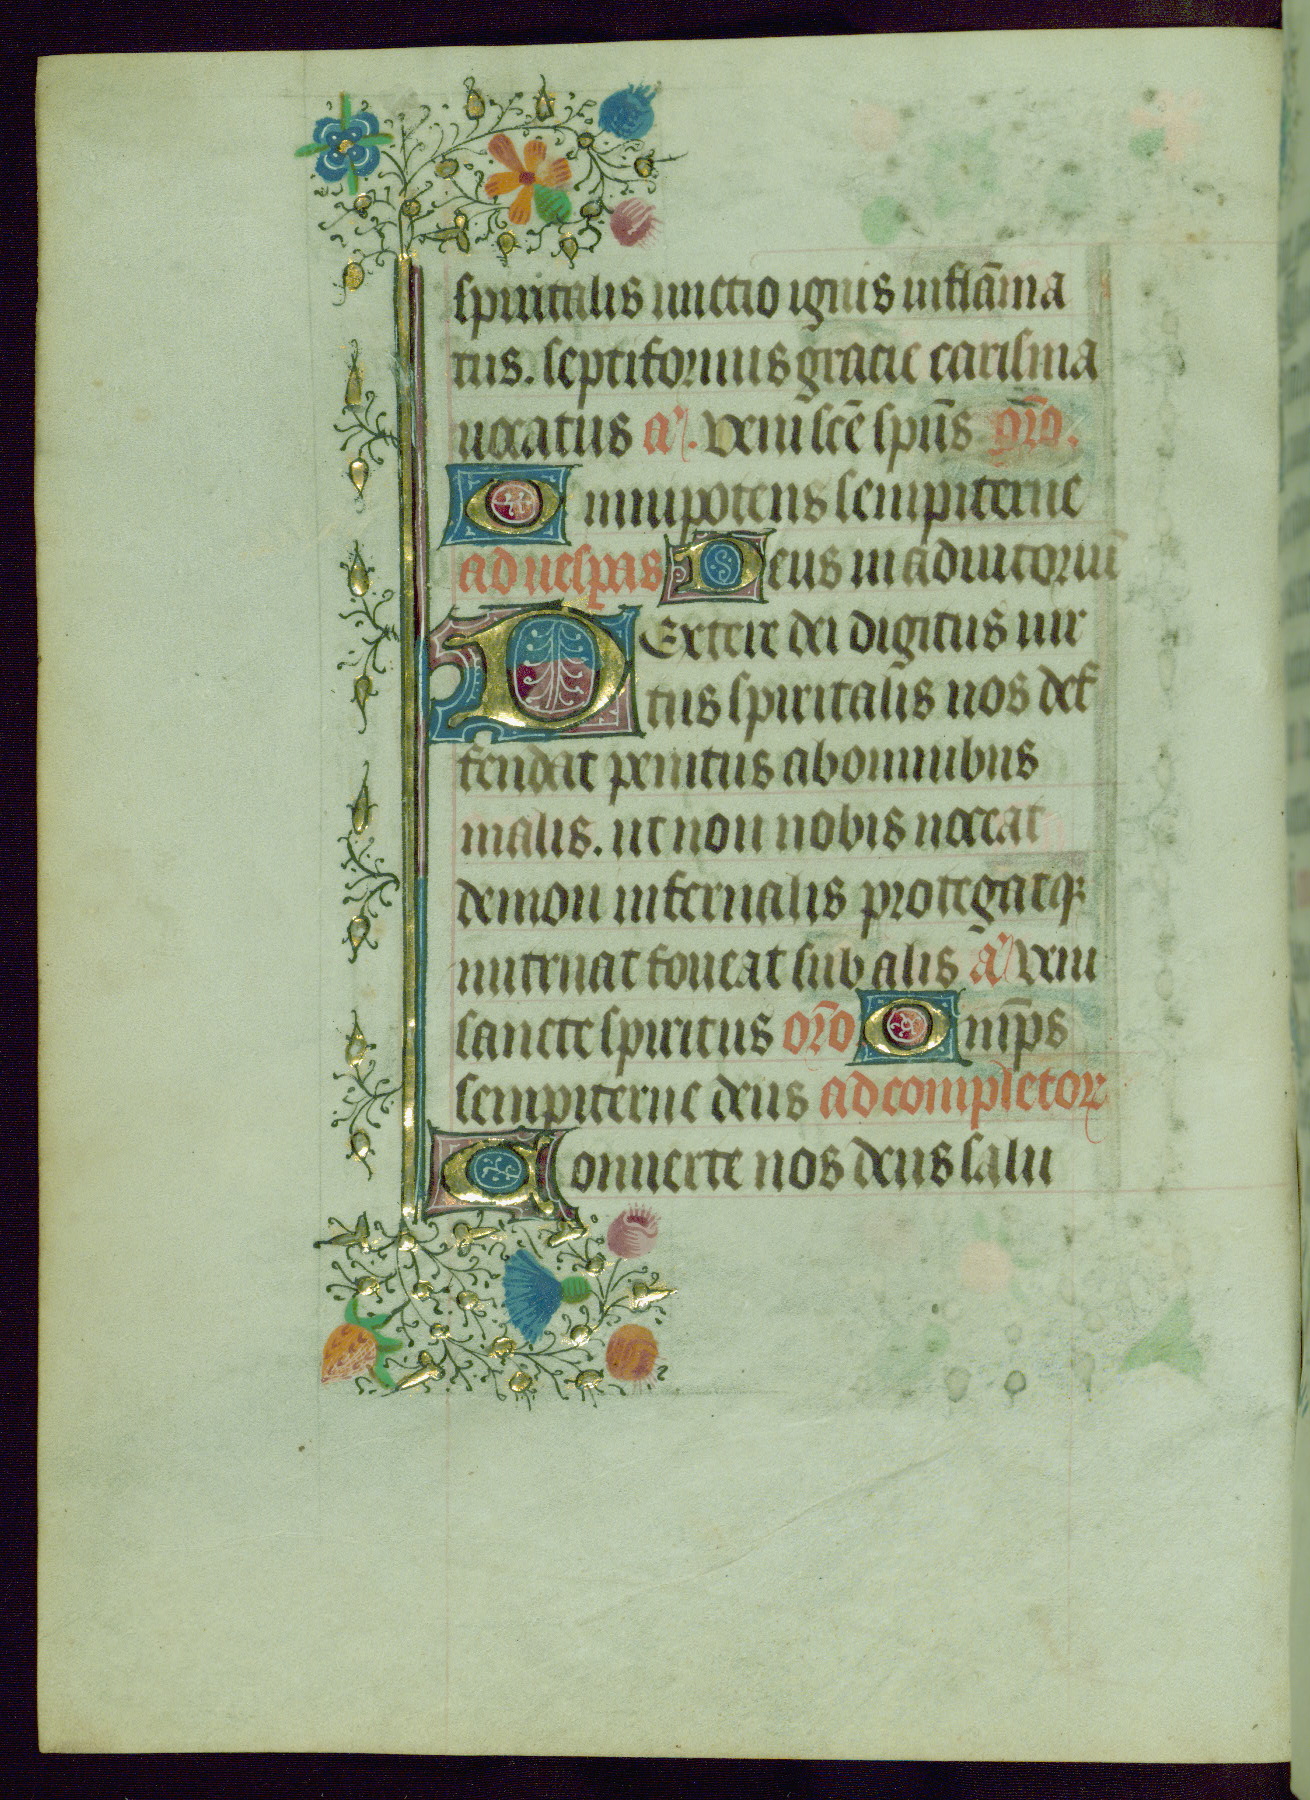 spiritalis unctio ignis inflāma
tus. septiformis gracie carisma
uocatus a͛. Veni scē spūs or̄o.
Omnipotens sempiterne
ad uespas Deus in adiutoriū
Dextere dei digitus uir
tus spiritalis nos def
fendat penitus ab omnibus
malis. ut non nobis noceat
demon infernalis protegatqꝫ
nutriat foueat sub alis ā Veni
sancte spiritus or̄o Omp̄s
sempiterne deus ad completorꝝ
Conuerte nos deus salu